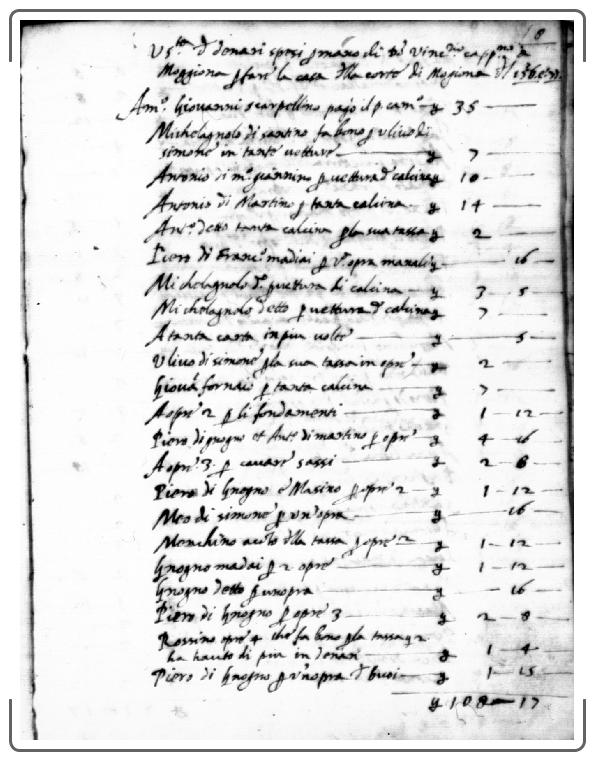 18
di denari spesi mano di
Moggiona fare la casa della corte di Mogiona
A mo. Giovanni scarpellino pago il p. cam.o — 35 —
Michelagnolo di santino fa bono p Ulivo di
simone in tante vetture — 7 —
Antonio di m.o giannino p vettura d calcina 10 —
Antonio di Martino p tanta calcina — 14 —
Ant.o detto tanta calcina p la sua tassa — 2 —
Piero di Franc.o madiai p opra manali — 16 —
Michelagnolo d.o p vettura di calcina — 3 – 5
Michelagnolo detto p vettura d calcina 7 —
A tanta carta in piu volte — 5 —
Ulivo di simone p la sua tassa in opre — 2 —
Giova fornaio p tanta calcina — 7 —
A opre 2 p li fondamenti — 1 – 12 –
Piero di gnogno et Ant.o di martino p opre 4 – 16
A opre 3. p cavare sassi — 2 – 8 –
Piero di Gnogno e Masino p opre 2 — 1 – 12 –
Meo di simone p un'opra — 16 –
Menchino a c.to dlla tassa p opre 2 — 1 – 12 –
Gnogno madai p 2 opre — 1 – 12 –
Gnogno detto p unopra — 16 –
Piero di Gnogno p opre 3 — 2 – 8
Rossino opre 4 che fa bono p la tassa 2
ha hauto di piu in denari — 1 – 4
Piero di Gnogno p un'opra d buoi — 1 – 15
108 — 17